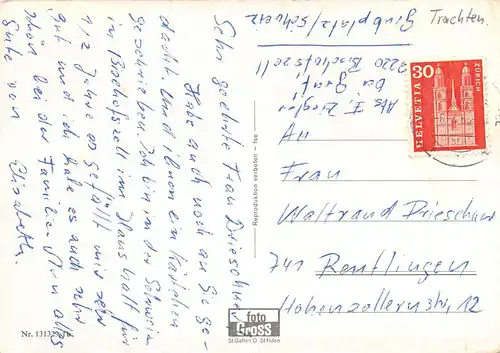 Sehr geehrte Frau Drieschner
Habe auch noch an Sie ge-
dacht, und Ihnen ein Kärtchen
geschrieben. Ich bin in der Schweiz
in Bischofszell im Haushalt für
1/2 Jahre es gefällt mir sehr
gut und ich habe es auch sehr
schön bei der Familie. Nun alles
Gute von
Elisabeth.
Grubplatz/Schweiz
9220 Bischofszell
Bei Graf
Abs. E. Ziegler
An
Frau
Waltraud Drieschner
741 Reutlingen
Hohenzollernstr. 12
Trachten.
30
HELVETIA
ZÜRICH
Reproduktion verboten - fee
foto
Gross
St.Gallen O. St.Fiden